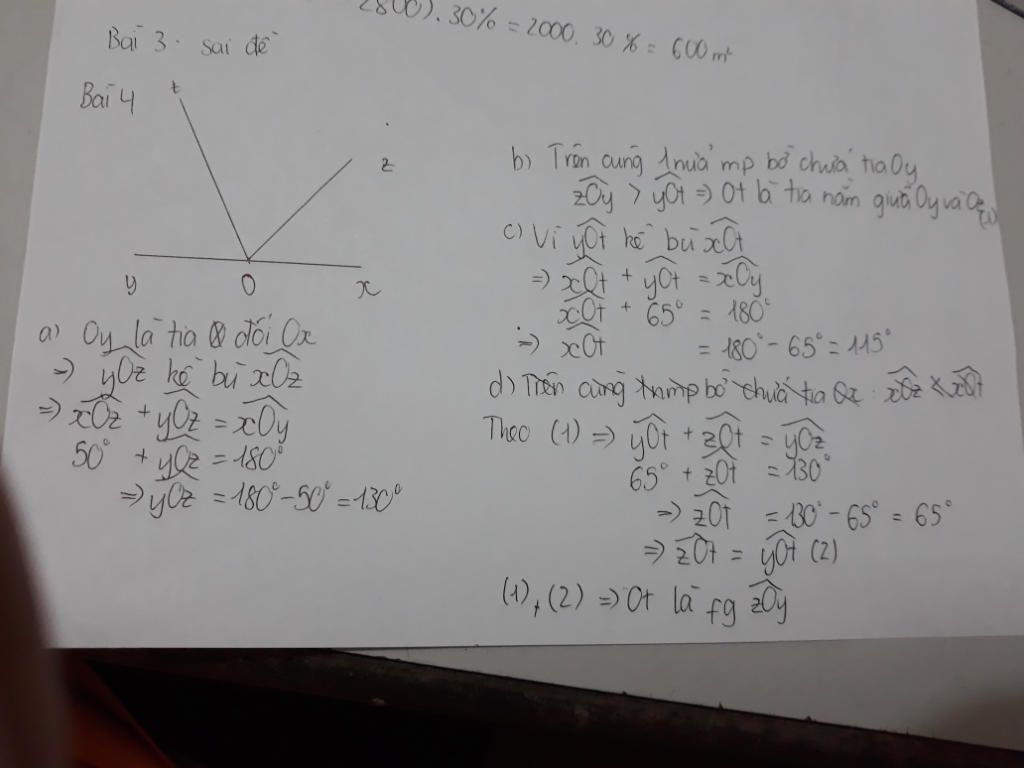 2800). 30% = 2000. 30 % = 600m²
Bài 3. sai đề
Bài 4
t
z
y
O
x
a) Oy là tia đối Ox
=> yOz kề bù xOz
=> xOz + yOz = xOy
50° + yOz = 180°
=> yOz = 180° - 50° = 130°
b) Trên cùng 1 nửa mp bờ chứa tia Oy
zOy > yOt => Ot là tia nằm giữa Oy và Oz (1)
c) Vì yOt kề bù xOt
=> xOt + yOt = xOy
xOt + 65° = 180°
=> xOt = 180° - 65° = 115°
d) Trên cùng mp bờ chứa tia Oz. xOz < xOt
Theo (1) => yOt + zOt = yOz
65° + zOt = 130°
=> zOt = 130° - 65° = 65°
=> zOt = yOt (2)
(1), (2) => Ot là fg zOy